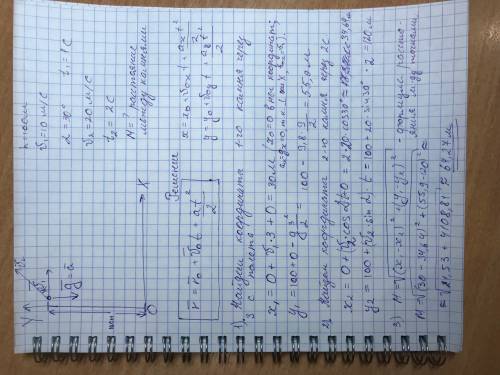 h=100м
v₁=10 м/с
α=30° t₁=1 С
v₂=20 м/С
t₂=2С
M=? расстояние
между камнями
Y
v₂
v₁
g=a
h=100м
O X
Решение
r = r₀ + v₀t + at²/2
x = x₀ + v₀xt + axt²/2
y = y₀ + v₀yt + ayt²/2
1) Найдём координаты 1-го камня через
3 с полёта
x₁ = 0 + v₁·3 + 0 = 30м (x₀=0 в нач. координат;
y₁ = 100 + 0 - g 3²/2 = 100 - 9,8 9/2 = 55,9 м
2) Найдём координаты 2-го камня через 2С
x₂ = 0 + (v₂·cosα)t + 0 = 2·20·cos30° = 34,64м
y₂ = 100 + v₂·sinα·t = 100 + 20·sin30°·2 = 120м
3) M = √(x₁-x₂)² + (y₁-y₂)² - формула расстояния между точками
M = √(30-34,64)² + (55,9-120)² =
= √21,53 + 4108,81 ≈ 64,27 м